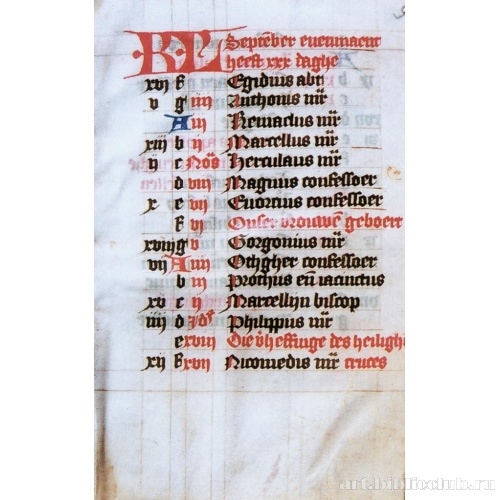 KL Septēber evenmaent
heeft xxx daghe
xvj f Egidius abt
v g iiij Anthonis mr̄
A iij Remaclus mr̄
xiij b ij Marcellus mr̄
ij c Noās Herculaus mr̄
d viij Magnus confessoer
x e vij Evortius confessoer
f vj Onser vrouwē geboert
xviij g v Gorgonius mr̄
vij A iiij Othgher confessoer
b iij Prothus eñ iacinctus
xv c ij Marcellijn biscop
iiij d Jdꝰ Philippus mr̄
e xviij Die v̄heffinge des heilighē
xij f xvij Nicomedis mr̄ cruces
art.biblioclub.ru